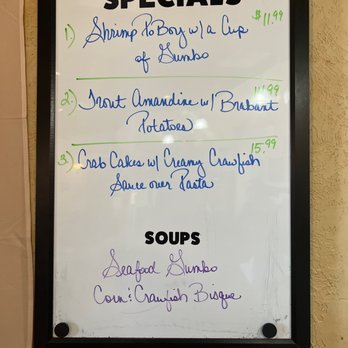 SPECIALS
$11.99
1.) Shrimp PoBoy w/a Cup
of Gumbo
2.) Trout Amandine w/ Brabant
Potatoes
15.99
3.) Crab Cakes w/ Creamy Crawfish
Sauce over Pasta
SOUPS
Seafood Gumbo
Corn & Crawfish Bisque